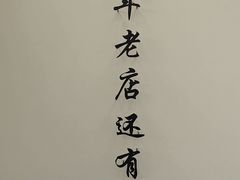 年老店还有